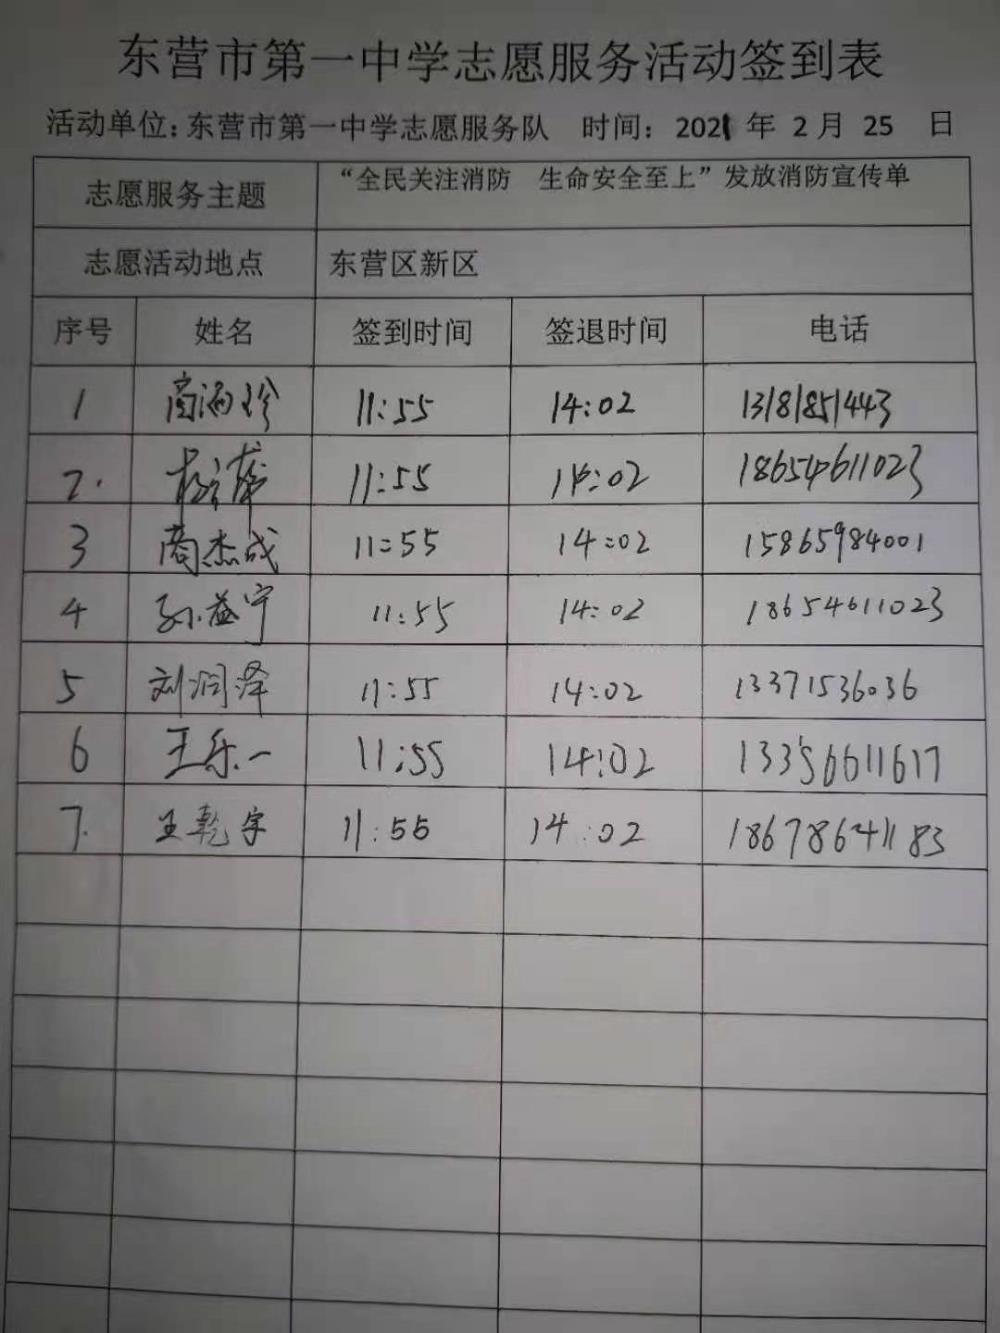 东营市第一中学志愿服务活动签到表
活动单位:东营市第一中学志愿服务队 时间: 2021 年 2 月 25 日
志愿服务主题 “全民关注消防 生命安全至上”发放消防宣传单
志愿活动地点 东营区新区
序号 姓名 签到时间 签退时间 电话
1 商 珍 11:55 14:02 13181851443
2. 11:55 14:02 18654611023
3 商杰成 11:55 14:02 15865984001
4 孙益宇 11:55 14:02 18654611023
5 刘润泽 11:55 14:02 13371536036
6 王乐一 11:55 14:02 13356611617
7. 王乾宇 11:55 14:02 18678641183